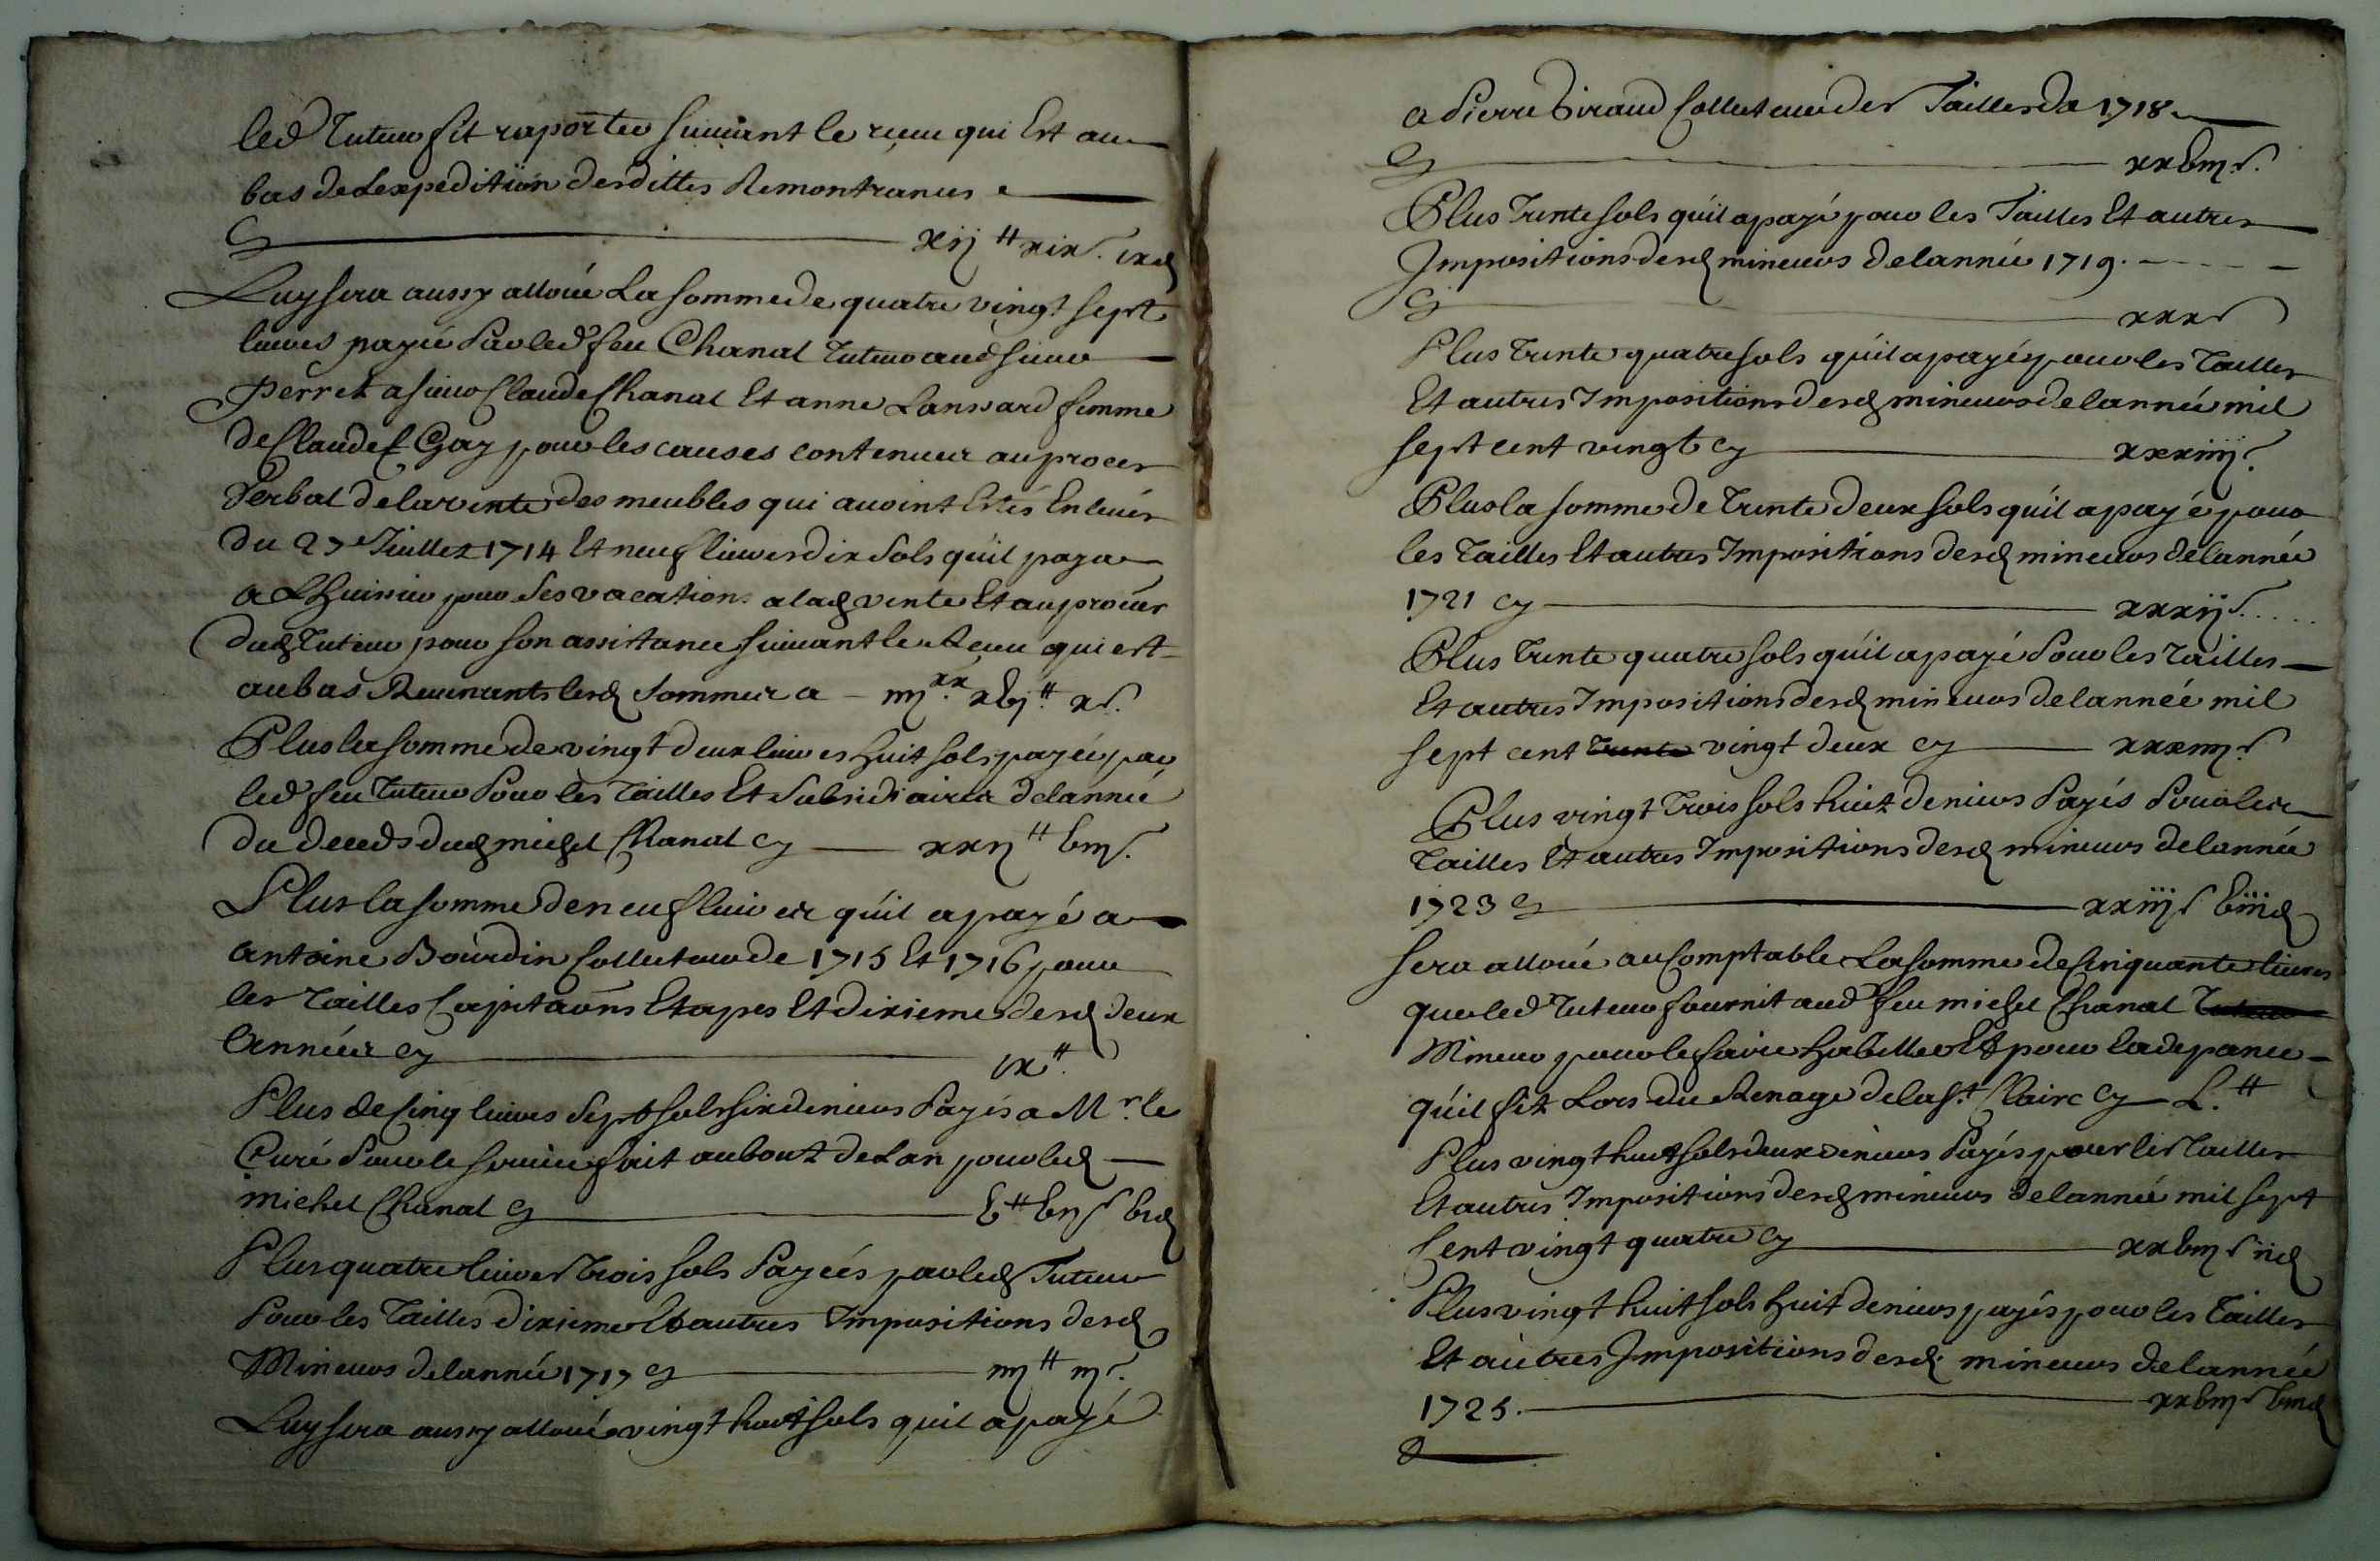 led Tuteur fit raporter suiuant le reçeu qui Est au
bas de Lexpedition desdittes Remontrances
Cy xij ₶ xix s. ixd
Luy sera aussy alloüé La somme de quatre vingt sept
liures payée Par led feu Chanal Tuteur aud sieur
Perret a sieur Claude Chanal Et anne Lansard femme
de Claude Gay pour les causes contenues au proces
Verbal de la vente des meubles qui auoint Estés Enleués
du 27e Juillet 1714 Et neuf liures dix Sols qu'il paya
a LHuissier pour Ses vacations a lad vente Et au procur
dud Tuteur pour son assistance suiuant le Receu qui est
au bas Reuenants lesd Sommes a iiij xx. xvj ₶ x s.
Plus la somme de vingt deux liures huit sols payée par
led feu Tuteur Pour les Tailles Et Subsidiaires de lannée
du deceds dud michel Chanal cy xxij ₶ viij s.
Plus la somme de neuf liures qu'il a payé a
antoine Bourdin Collecteur de 1715 Et 1716 pour
les Tailles Capitaons Etapes Et dixieme desd deux
Années cy ix ₶.
Plus de Cinq liures Sept sols six deniers Payés a Mr. le
Curé Pour le seruice fait au bout de Lan pour led
michel Chanal cy v ₶ vij s vid
Plus quatre liures Trois sols Payées par led Tuteur
Pour les Tailles dixieme Et autres Impositions desd
Mineurs de lannée 1717 cy iiij ₶ iij s.
Luy sera aussy alloüé vingt huit sols quil a payé
a Pierre Giraud Collecteur des Tailles de 1718
Cy xxviij s.
Plus Trente sols qu'il a payé pour les Tailles Et autres
Impositions desd mineurs de lannée 1719.
Cy xxx s
Plus Trente quatre sols qu'il a payé pour les Tailles
Et autres Impositions desd mineurs de lannée mil
sept cent vingt cy xxxiiij s.
Plus la somme de Trente deux sols qu'il a payé pour
les Tailles Et autres Impositions desd mineurs de lannée
1721 cy xxxij s.
Plus Trente quatre sols qu'il a payé Pour les Tailles
Et autres Impositions desd mineurs de lannéé mil
sept cent Trente vingt deux cy xxxiiij s
Plus vingt Trois sols huit deniers Payés Pour les
Tailles Et autres Impositions desd mineurs de lannée
1723 cy xxiij s viijd
sera alloüé au Comptable La somme de Cinquante liures
que led Tuteur fournit aud feu michel Chanal Tuteur
Mineur pour le faire habiller Et pour la depance
qu'il fit Lors du Renage de la St. Claire cy L. ₶
Plus vingt huit sols deux deniers Payés pour les Tailles
Et autres Impositions desd mineurs de lannée mil sept
Cent vingt quatre cy xxviij s ijd
Plus vingt huit sols huit deniers payés pour les Tailles
Et autres Impositions desd. mineurs de lannée
1725. xxviij s viijd